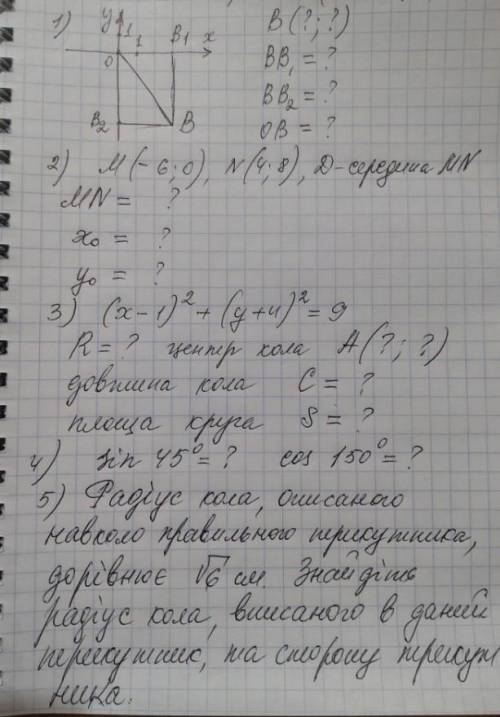 1) y 1 1 B₁ x B (?; ?)
0 BB₁ = ?
BB₂ = ?
B₂ B OB = ?
2) M(-6; 0), N(4; 8), D - середина MN
MN = ?
x₀ = ?
y₀ = ?
3) (x-1)² + (y+4)² = 9
R = ? центр кола A(?; ?)
довжина кола C = ?
площа круга S = ?
4) sin 45° = ? cos 150° = ?
5) Радіус кола, описаного
навколо правильного трикутника,
дорівнює √6 см. Знайдіть
радіус кола, вписаного в даний
трикутник, та сторону трикут
ника.